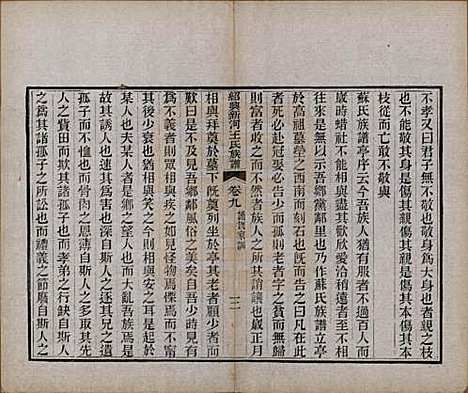 不孝又曰君子無不敬也敬身爲大身也者親之枝
枝從而亡敢不敬與
蘇氏族譜亭序云今吾族人猶有服者不過百人而
歲時蜡社不能相與盡其歡欣愛洽稍遠者至不相
往來是無以示吾鄉黨鄰里也乃作蘇氏族譜立亭
於高祖墓塋之西南而刻石也既而告之曰凡在此
者死必赴冠娶妻必告少而孤則老者字之貧而無歸
則富者收之而不然者族人之所共誚讓也歲正月
紹興新河王氏族譜
卷九
譜訓家訓
三
相與拜奠於墓下既奠列坐於亭其老者顧少者而
歎曰是不及見吾鄉鄰風俗之美矣自吾少時見有
爲不義者則眾相與疾之如見怪物焉慄焉而不寧
其後少衰也猶相與笑之今則相與安之耳是起於
某人也夫某人者是鄉之望人也而大亂吾族焉是
故其誘人也速其爲害也深自斯人之逐其兄之遺
孤子而不卹也而骨肉之恩薄自斯人之多取其先
人之貲田而欺其諸孤子也而孝弟之行缺自斯人
之爲其諸孤子之所訟也而禮義之節廢自斯人之